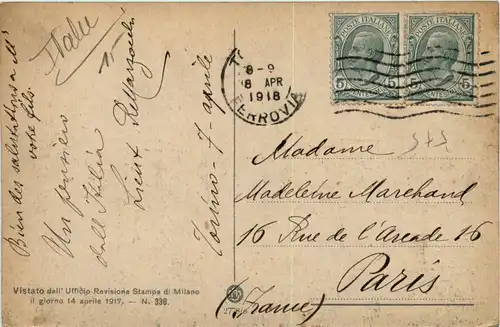 Italie
Bien des salutations a Mr
votre fils.
Un pensiero
dall'Italia
Torino - 7 - aprile
8-9
8 APR
1918
FERROVIA
POSTE ITALIANE
5
5
POSTE ITALIANE
5
5
Madame
Madeleine Marchand
16 Rue de l'Arcade 16
Paris
(France)
Vistato dall' Ufficio Revisione Stampa di Milano
il giorno 14 aprile 1917. - N. 336.